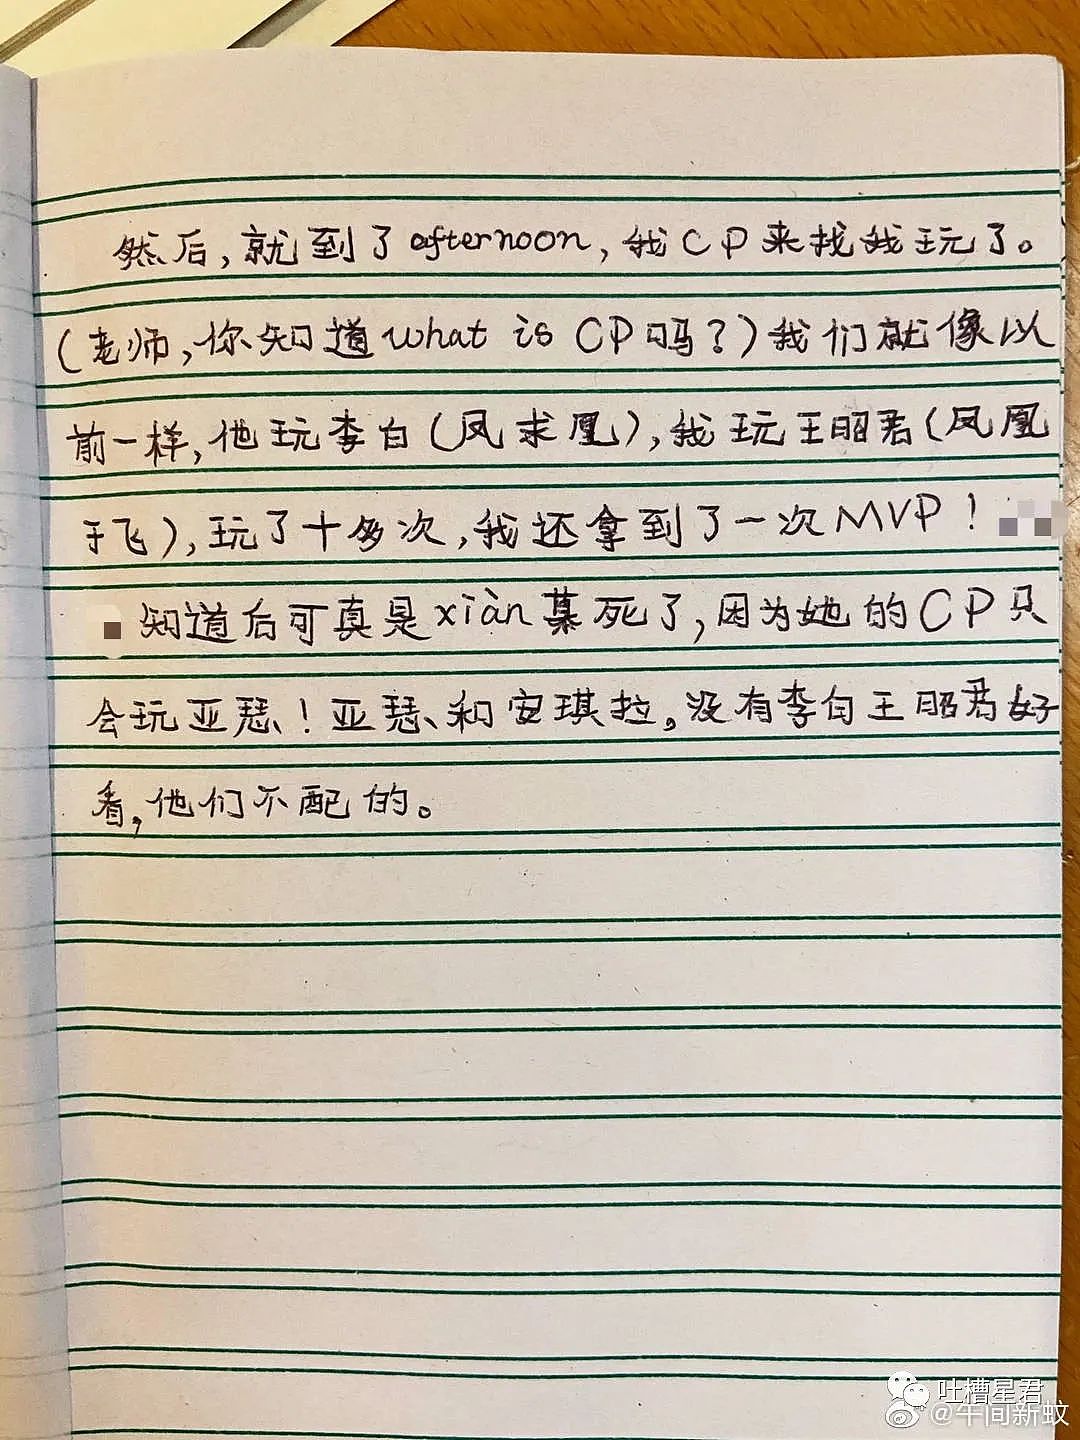 然后，就到了efternoon，我CP来找我玩了。
（老师，你知道what is CP吗？）我们就像以
前一样，他玩李白（凤求凰），我玩王昭君（凤凰
于飞），玩了十多次，我还拿到了一次MVP！
知道后可真是xiàn慕死了，因为她的CP只
会玩亚瑟！亚瑟和安琪拉，没有李白王昭君好
看，他们不配的。
吐槽星君
@午间新蚊